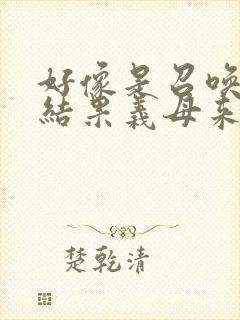 好像是召喚
結果義母來
楚乾清